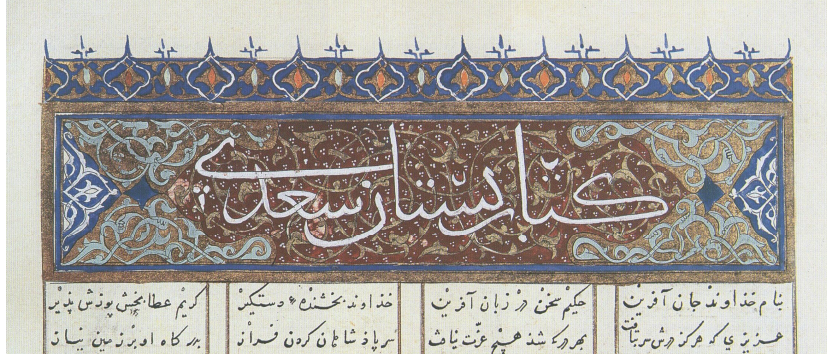 کتاب بستان سعدی
بنام خذاوند جان آفرین حکیم سخن در زبان آفرین خذاوند بخشنده و دستکیر کریم عطا بخش پوذش پذیر
عزیزی که هرکز درش سر بتافت بهر در که شذ هیچ عزت نیافت سر پاذشاهان کردن فراز بدرکاه او بر زمین نیاز